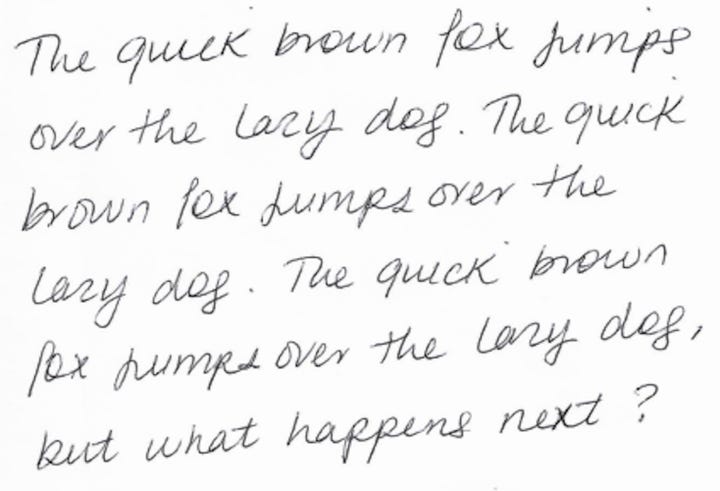 The quick brown fox jumps
over the lazy dog. The quick
brown fox jumps over the
lazy dog. The quick brown
fox jumps over the lazy dog,
but what happens next?